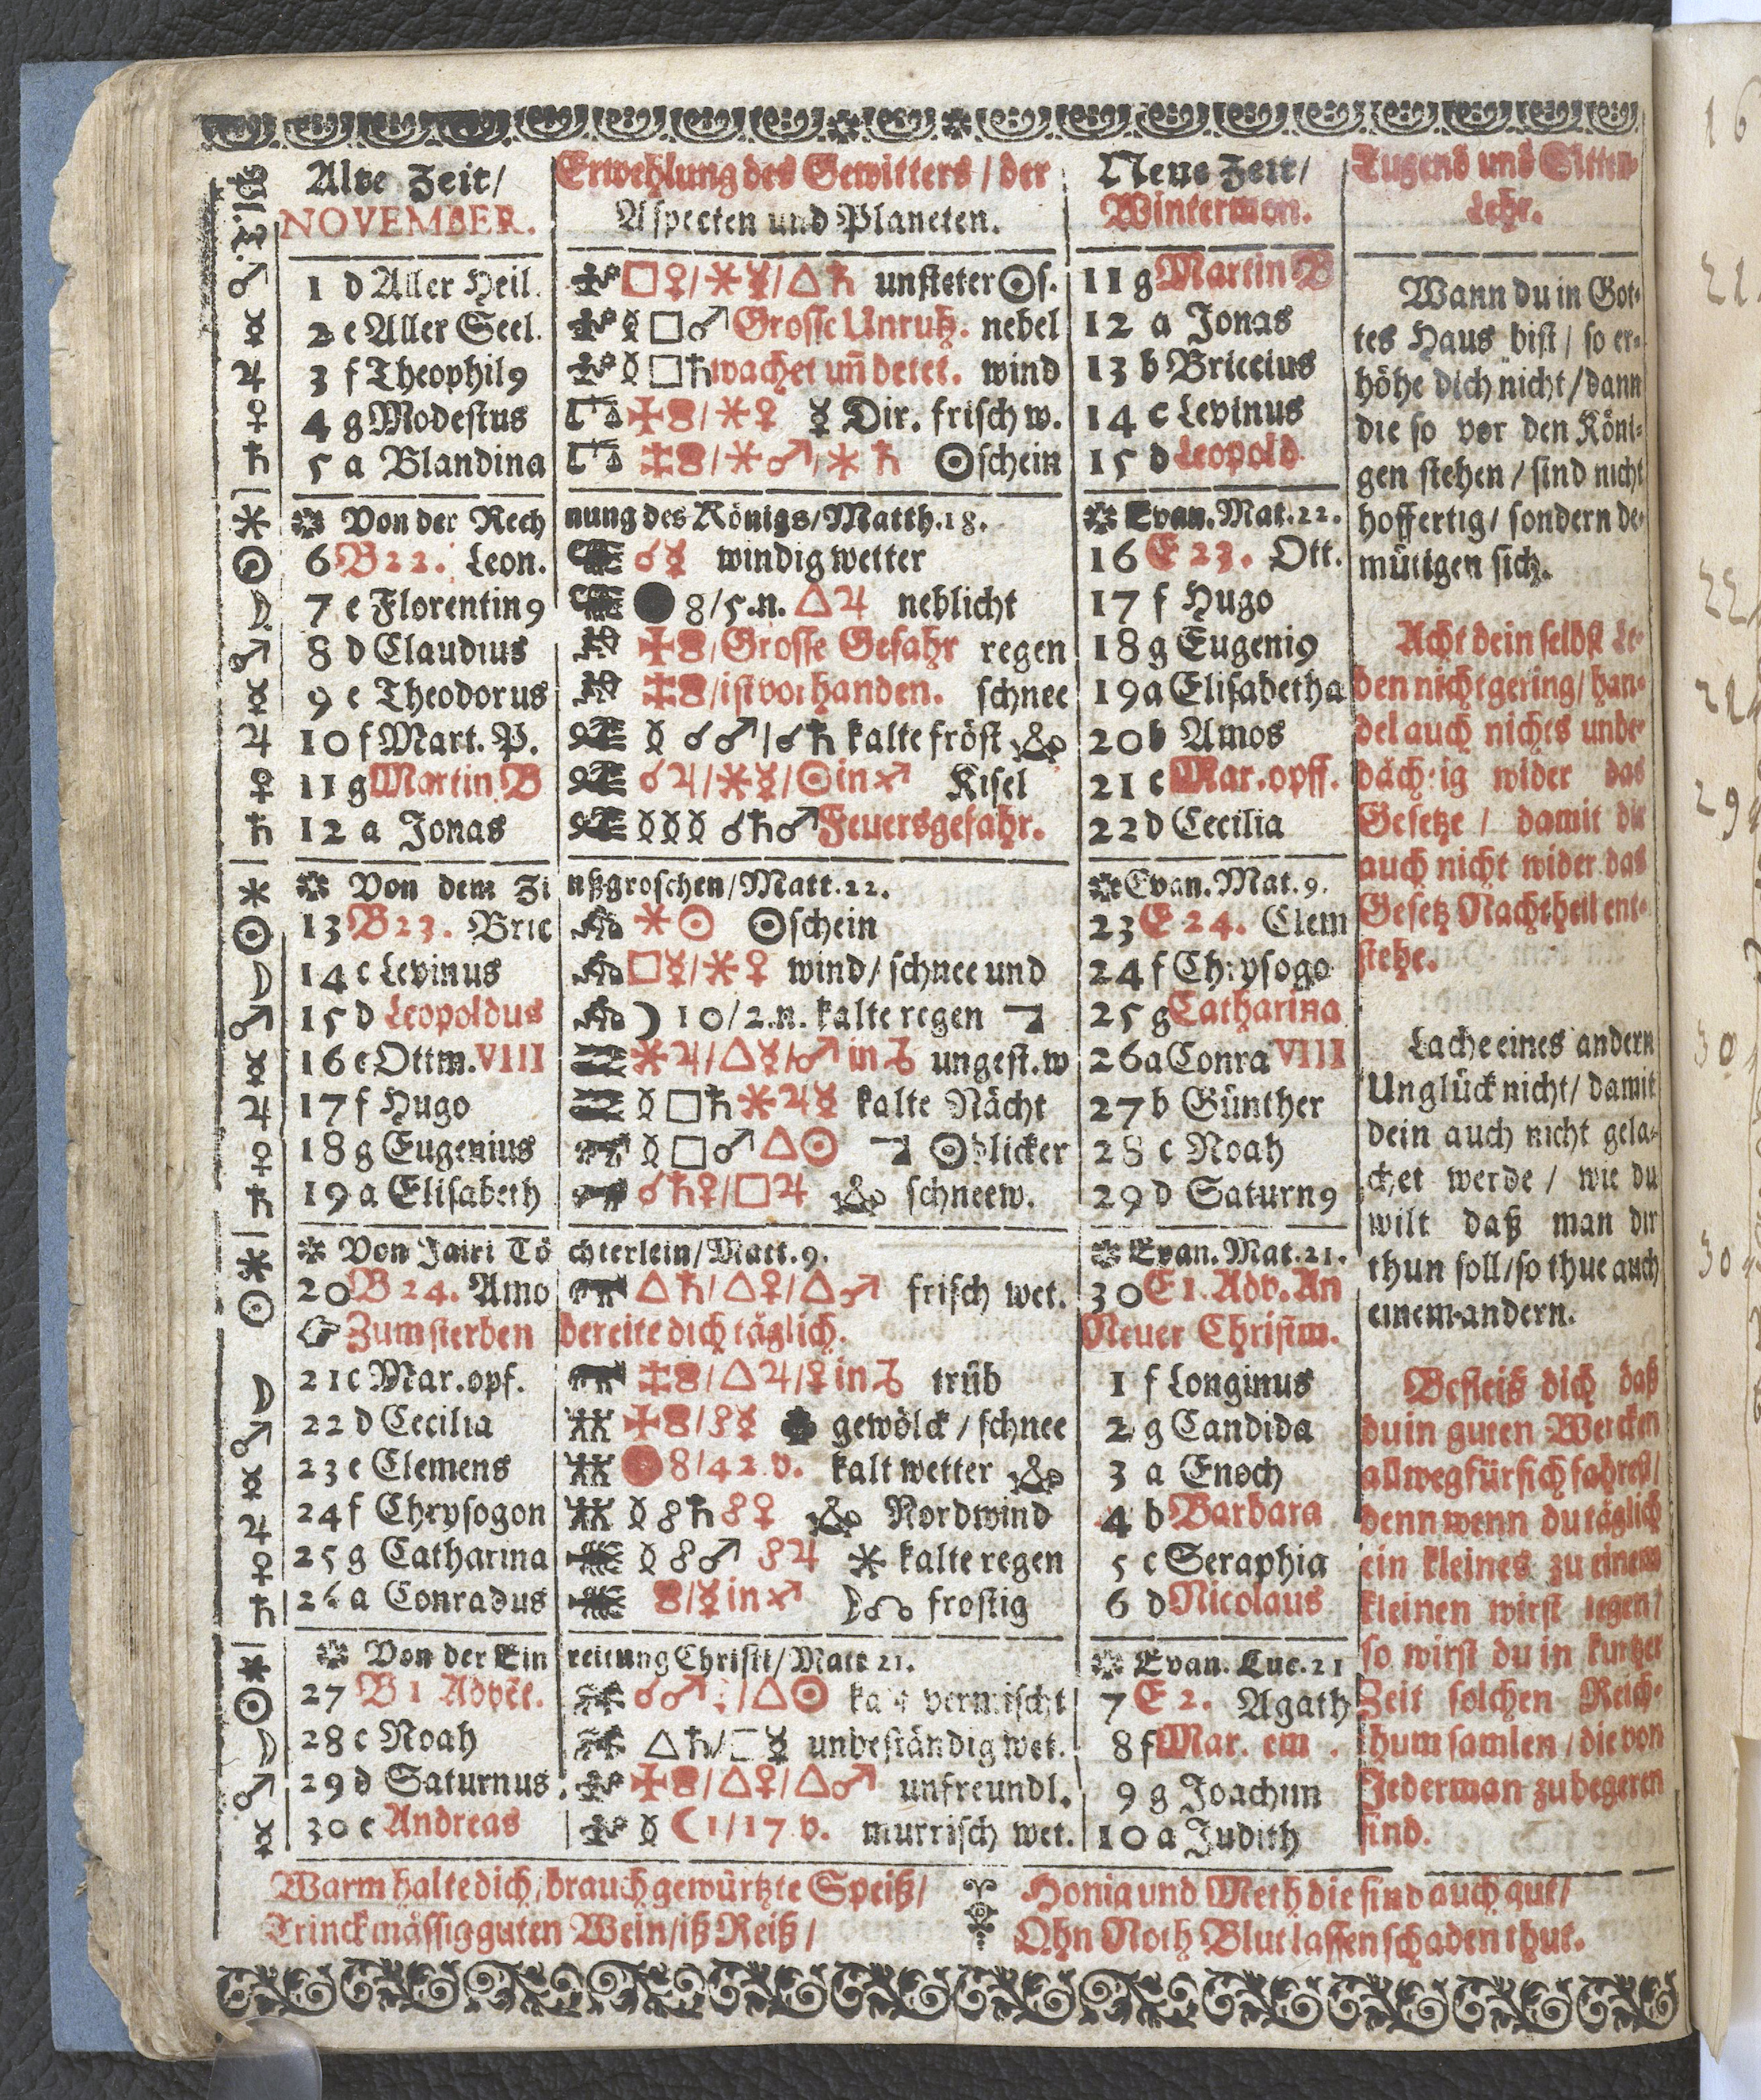 Alte Zeit/ Erwehlung des Gewitters / der Neue Zeit/ Tugend und Sitten-
NOVEMBER. Aspecten und Planeten. Wintermon. Lehr.
♂ 1 d Aller Heil. □♀/✶☿/△♄ unsteter☉s. 11 g Martin B
☿ 2 e Aller Seel. ☿□♂ Grosse Unruh. nebel 12 a Jonas
♃ 3 f Theophil9 ☿□♄ wachet uñ betet. wind 13 b Briccius
♀ 4 g Modestus ✶♀ ☿ Dir. frisch w. 14 c Levinus
♄ 5 a Blandina ✶♂/✶♄ ☉schein 15 d Leopold
✶ Von der Rech nung des Königs/Matth.18. Evan. Mat. 22.
☉ 6 B 22. Leon. ☌☿ windig wetter 16 E 23. Ott.
☽ 7 c Florentin9 ● 8/5.n. △♃ neblicht 17 f Hugo
♂ 8 d Claudius Grosse Gefahr regen 18 g Eugeni9
☿ 9 e Theodorus /ist vorhanden. schnee 19 a Elisabetha
♃ 10 f Mart. P. ☿ ☌♂/☌♄ kalte fröst 20 b Amos
♀ 11 g Martin B ☌♃/✶☿/☉in♐ Kisel 21 c Mar.opff.
♄ 12 a Jonas ☿☿☿ ☌♄♂ Feuersgefahr. 22 d Cecilia
✶ Von dem Zi nßgroschen/Matt.22. Evan. Mat. 9.
☉ 13 B 23. Bric ✶☉ ☉schein 23 E 24. Clem
☽ 14 c Levinus □☿/✶♀ wind/ schnee und 24 f Chrysogo
♂ 15 d Leopoldus ☽ 10/2.n. kalte regen 25 g Catharina
☿ 16 e Ottm. VIII ✶♃/△☿/♂ in♑ ungest.w 26 a Conra VIII
♃ 17 f Hugo ☿□♄✶♃☿ kalte Nächt 27 b Günther
♀ 18 g Eugenius ☿□♂△☉ ☉blicker 28 c Noah
♄ 19 a Elisabeth ☌♄♀/□♃ schneew. 29 d Saturn9
✶ Von Jairi Tö chterlein/Matt.9. Evan. Mat.21.
☉ 20 B 24. Amo △♄/△♀/△♂ frisch wet. 30 E 1. Adv. An
Zum sterben bereite dich täglich. Neuer Christm.
☽ 21 c Mar.opf. △♃/♀in♑ trüb 1 f Longinus
♂ 22 d Cecilia ☍☿ gewölck / schnee 2 g Candida
☿ 23 e Clemens 8/42.v. kalt wetter 3 a Enoch
♃ 24 f Chrysogon ☿☍♄☍♀ Nordwind 4 b Barbara
♀ 25 g Catharina ☿☍♂ ☍♃ ✶ kalte regen 5 c Seraphia
♄ 26 a Conradus /☿in♐ ☽☊ frostig 6 d Nicolaus
✶ Von der Ein reitung Christi/Matt 21. Evan. Luc. 21
☉ 27 B 1 Advēt. △☉ vermischt 7 E 2. Agath
☽ 28 c Noah △♄/□☿ unbeständig wet. 8 f Mar. em .
♂ 29 d Saturnus △♀/△♂ unfreundl. 9 g Joachim
☿ 30 e Andreas ☿ ☾1/17.v. murrisch wet. 10 a Judith
Wann du in Got-
tes Haus bist / so er-
höhe dich nicht/dann
die so vor den Köni-
gen stehen / sind nicht
hoffertig/ sondern de-
mütigen sich.
Acht dein selbst Le-
ben nicht gering/ han-
del auch nichts unbe-
dächtig wider das
Gesetze / damit dir
auch nicht wider das
Gesetz Nachtheil ent-
stehe.
Lache eines andern
Unglück nicht/ damit
dein auch nicht gela-
chet werde / wie du
wilt daß man dir
thun soll/so thue auch
einem andern.
Befleiß dich daß
du in guten Wercken
allweg für sich fahrest/
denn wenn du täglich
ein kleines zu einem
kleinen wirst legen/
so wirst du in kurtzer
Zeit solchen Reich-
thum samlen / die von
Jederman zu begeren
sind.
Warm halte dich/brauch gewürtzte Speiß/
Trinck mässig guten Wein/iß Reiß/
Honig und Meth die sind auch gut/
Ohn Noth Blutlassen schaden thut.